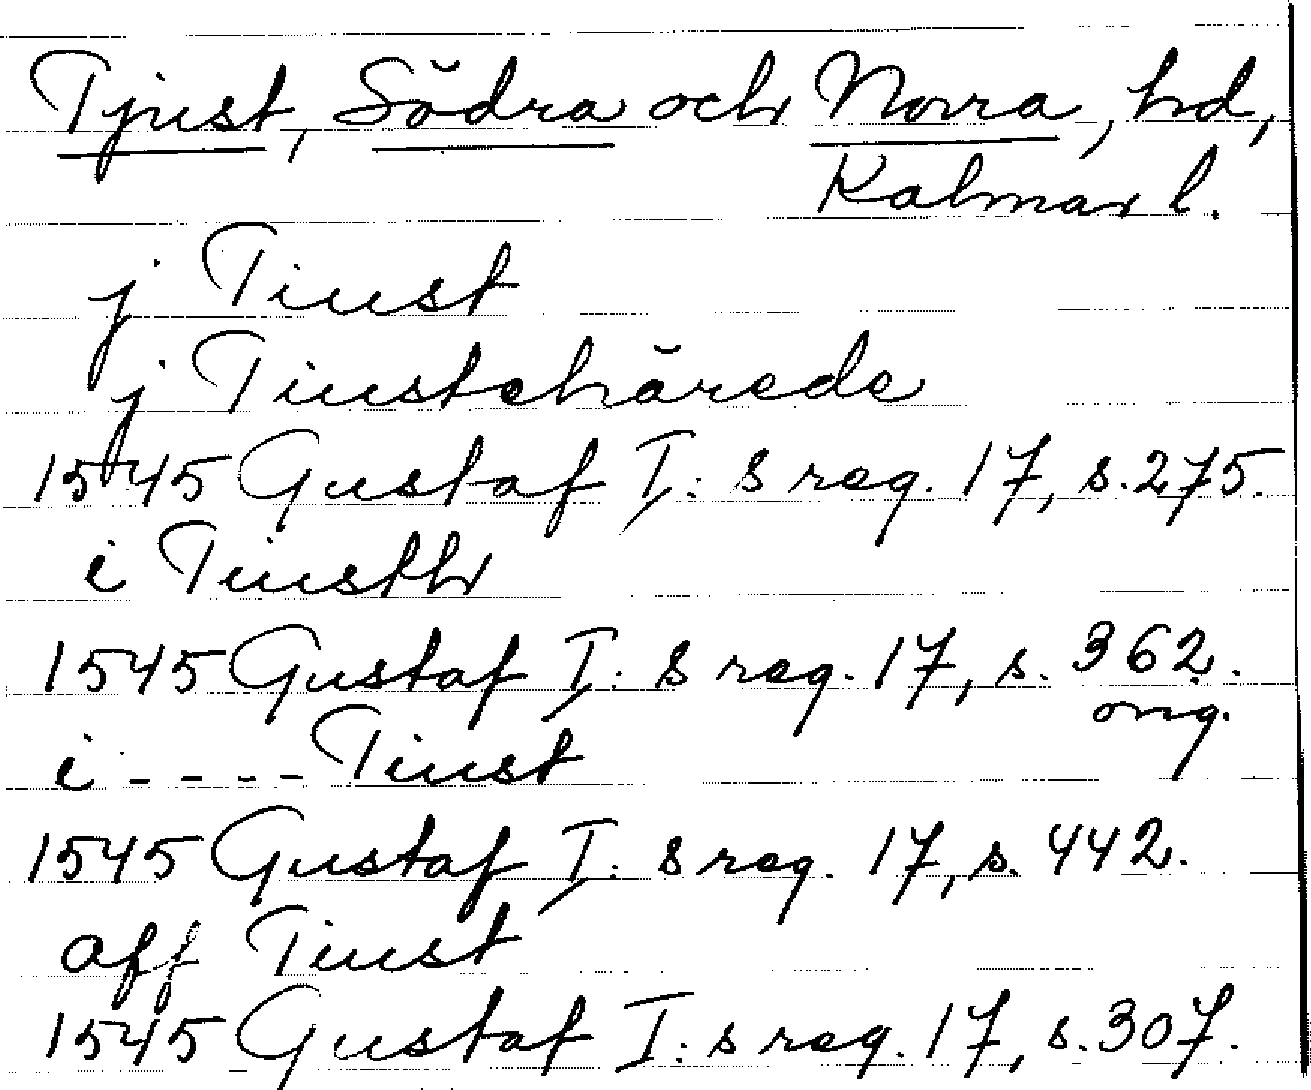 Tjust, Södra och Norra, hd,
Kalmar l.
j Tiust
j Tiustehärede
1545 Gustaf I:s reg. 17, s. 275.
i Tiusthr
1545 Gustaf I:s reg. 17, s. 362.
orig.
i - - - - Tiust
1545 Gustaf I:s reg. 17, s. 442.
aff Tiust
1545 Gustaf I:s reg. 17, s. 307.